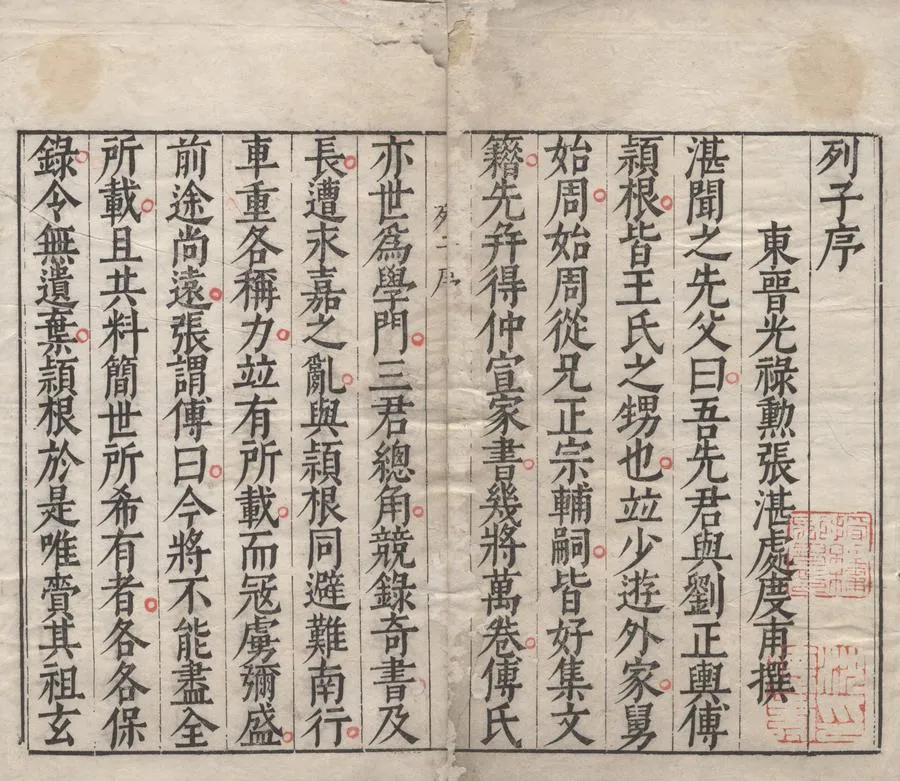 列子序
東晉光祿勲張湛處度甫撰
湛聞之先父曰吾先君與劉正輿傅
頴根皆王氏之甥也竝少遊外家舅
始周始周從兄正宗輔嗣皆好集文
籍先幷得仲宣家書幾將萬卷傅氏
列子序
亦世爲學門三君總角競錄奇書及
長遭永嘉之亂與頴根同避難南行
車重各稱力竝有所載而冦虜彌盛
前途尚遠張謂傅曰今將不能盡全
所載且共料簡世所希有者各各保
錄令無遺棄頴根於是唯賫其祖玄